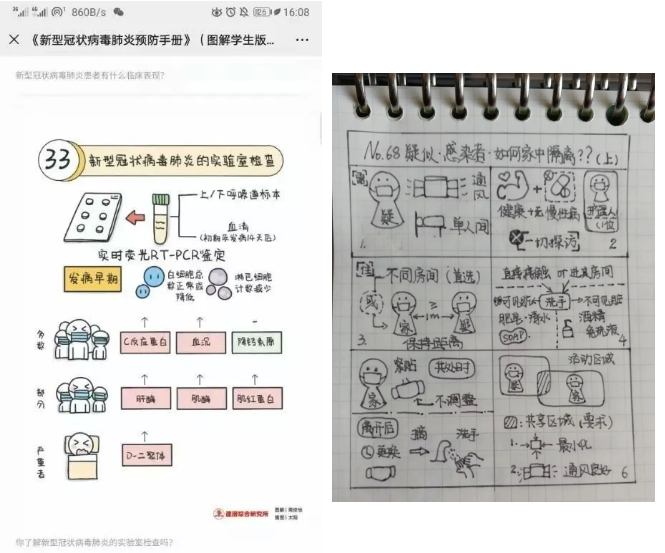 860B/s
16:08
《新型冠状病毒肺炎预防手册》(图解学生版...
新型冠状病毒肺炎患者有什么临床表现?
33 新型冠状病毒肺炎的实验室检查
上/下呼吸道标本
血清
(初期采发病14天后)
实时荧光RT-PCR鉴定
发病早期
白细胞总
数正常或
降低
淋巴细胞
计数减少
多数
C反应蛋白
血沉
降钙素原
部分
肝酶
肌酶
肌红蛋白
严重者
D-二聚体
你了解新型冠状病毒肺炎的实验室检查吗?
No.68 疑似·感染者·如何家中隔离??(上)
疑
通风
单人间
1.
健康+无慢性病
护理人
1位
一切探访
2
不同房间(首选)
或
家
≥
1m
疑
保持距离
3.
直接接触 or 进其房间
洗手
不可见脏
肥皂+清水
酒精
免洗液
SOAP
4
家
紧贴
共处时
不调整
离开后
摘
洗手
活动区域
疑
家
:共享区域(要求)
1.
最小化
2.
通风良好
6